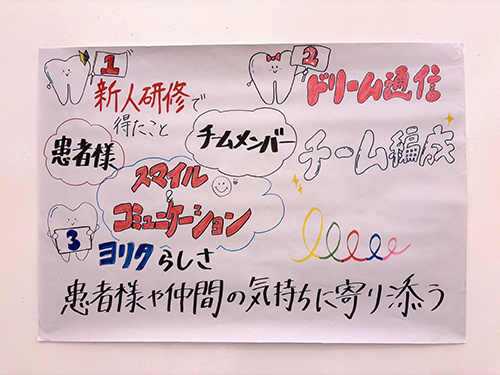 1
新人研修で
得たこと
患者様
チームメンバー
スマイル
&
コミュニケーション
2
ドリーム通信
チーム編成
3
ヨリタらしさ
患者様や仲間の気持ちに寄り添う